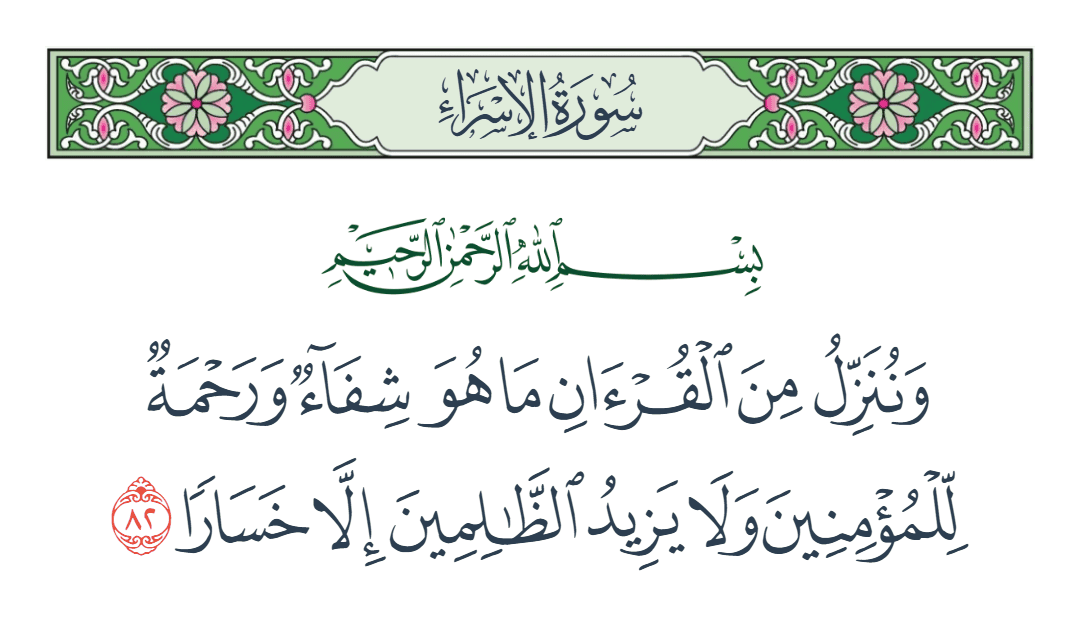 سُورَةُ الإِسْرَاءِ
بِسْمِ ٱللَّهِ ٱلرَّحْمَٰنِ ٱلرَّحِيمِ
وَنُنَزِّلُ مِنَ ٱلْقُرْءَانِ مَا هُوَ شِفَآءٌ وَرَحْمَةٌ
لِّلْمُؤْمِنِينَ وَلَا يَزِيدُ ٱلظَّٰلِمِينَ إِلَّا خَسَارًا ٨٢